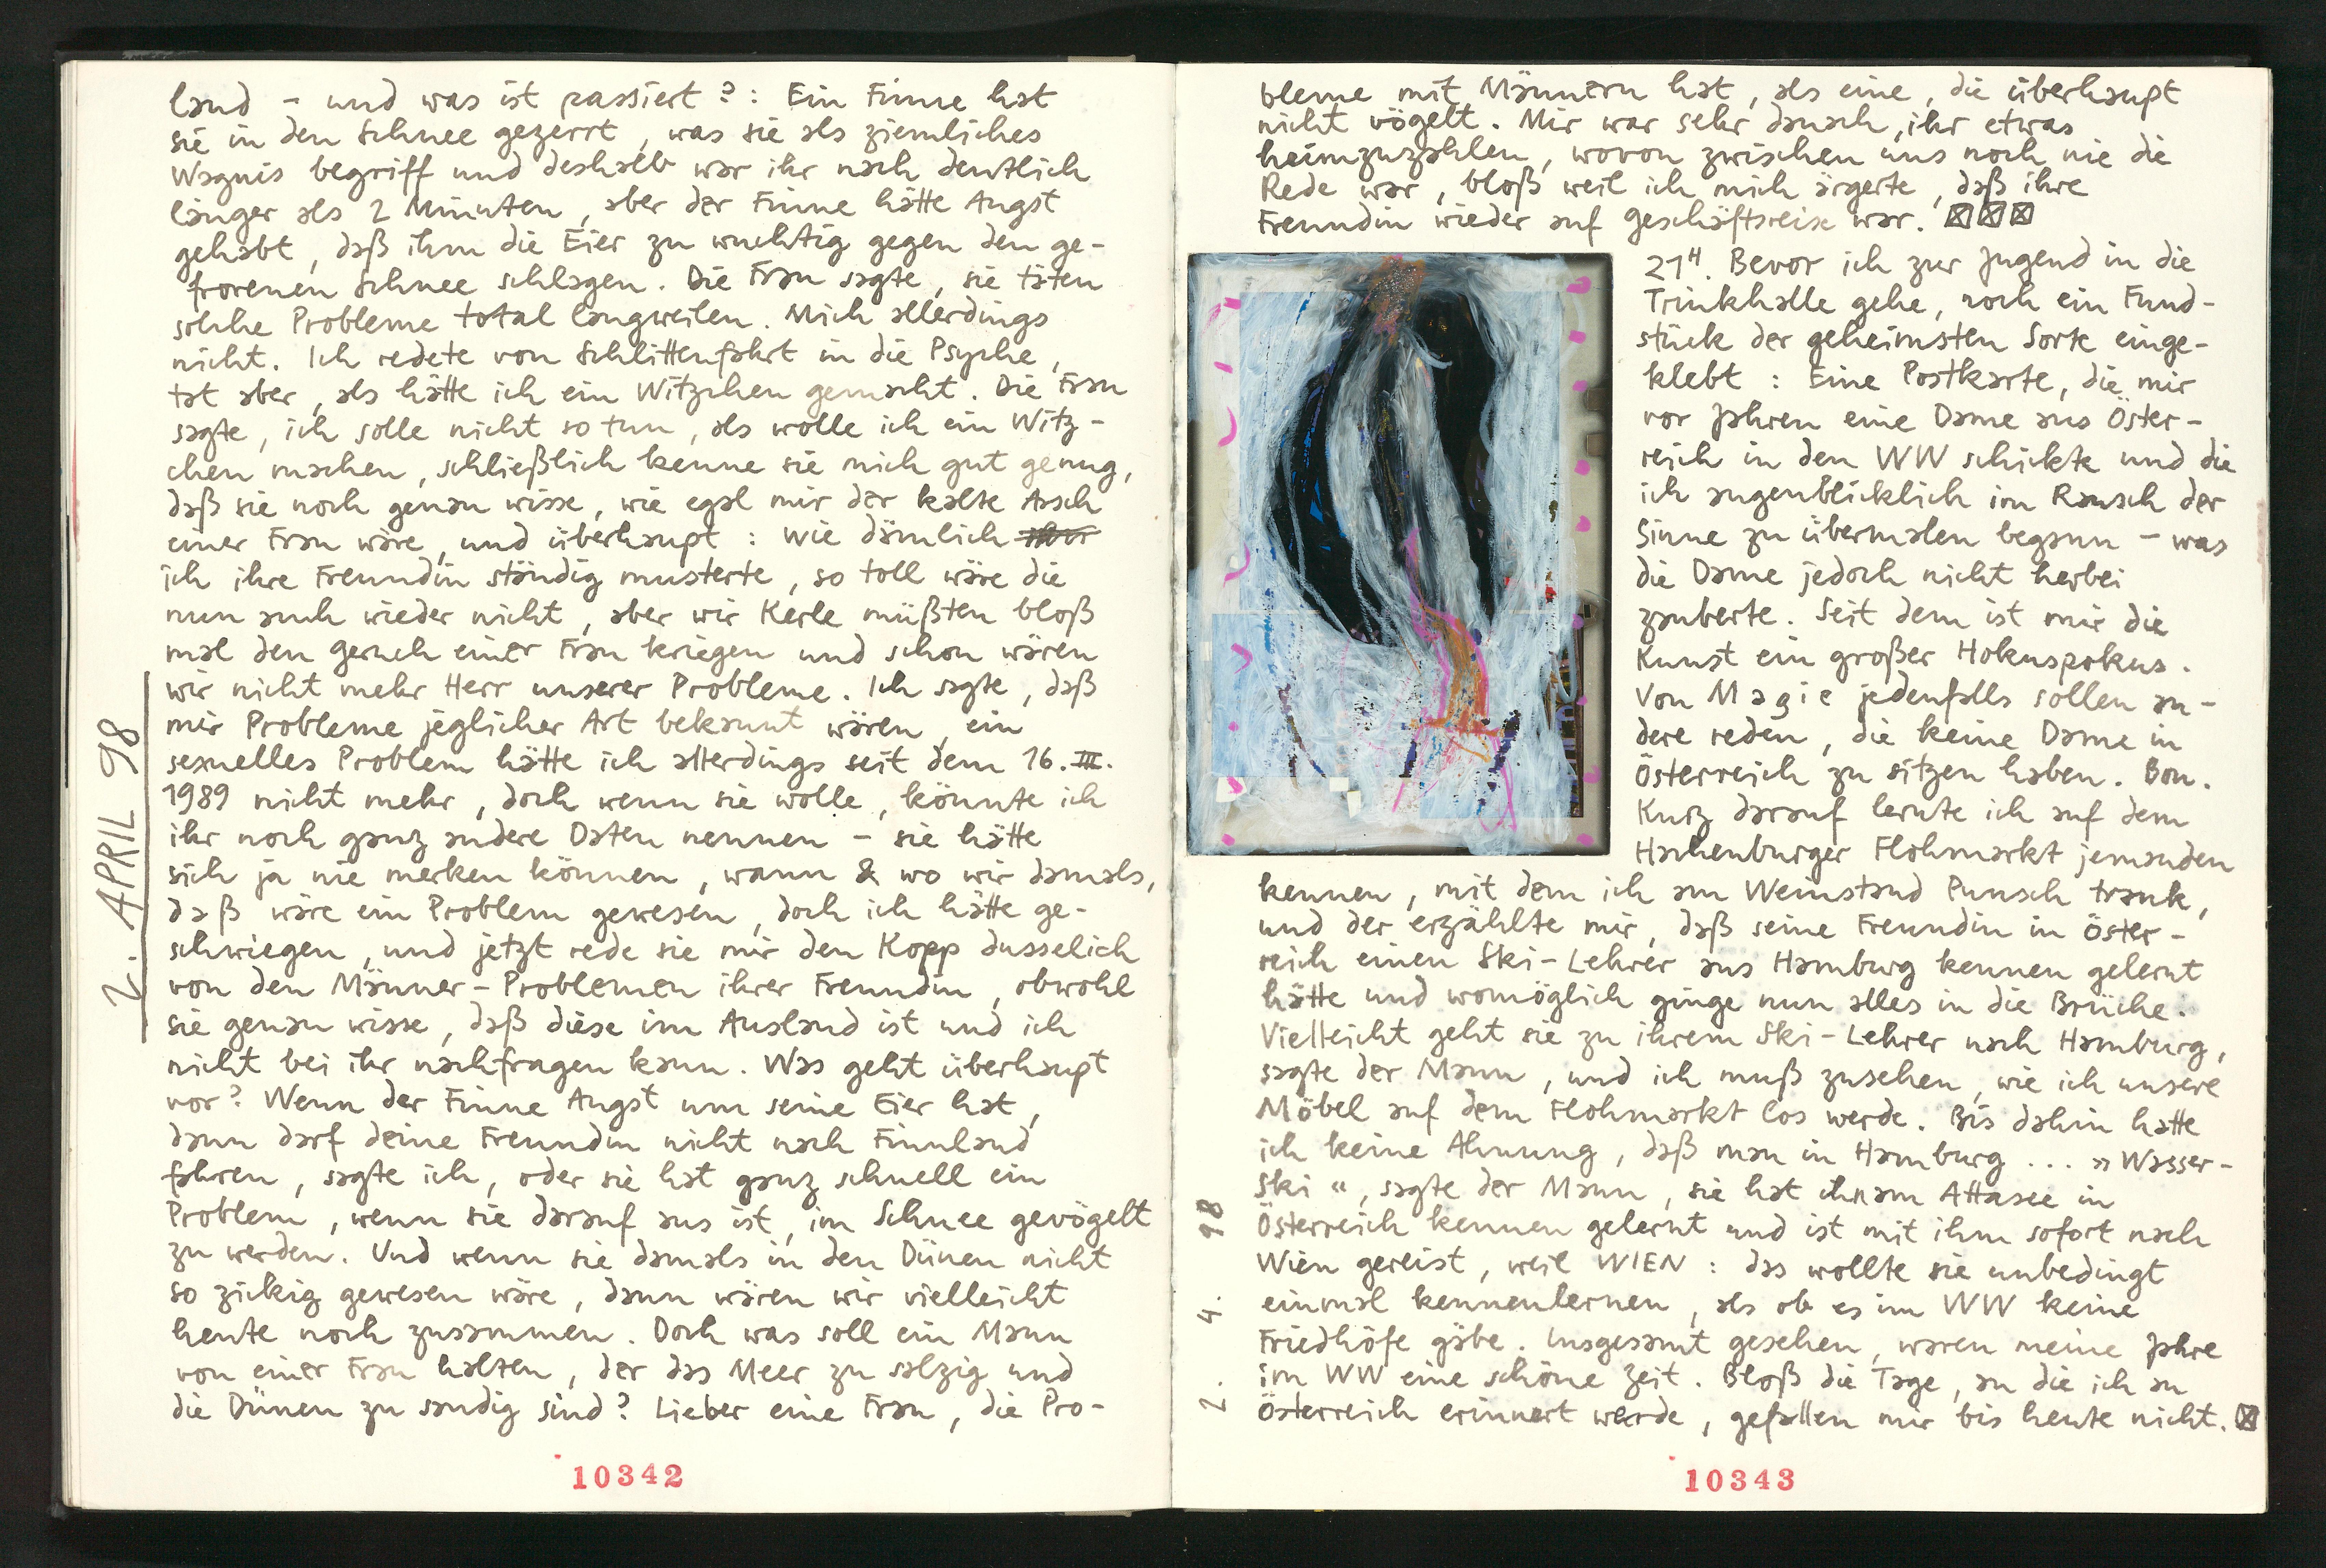 land – und was ist passiert?: Ein Finne hat
sie in den Schnee gezerrt, was sie als ziemliches
Wagnis begriff und deshalb war ihr nach deutlich
länger als 2 Minuten, aber der Finne hätte Angst
gehabt, daß ihm die Eier zu wuchtig gegen den ge-
frorenen Schnee schlagen. Die Frau sagte, sie täten
solche Probleme total langweilen. Mich allerdings
nicht. Ich redete von Schlittenfahrt in die Psyche,
tat aber, als hätte ich ein Witzchen gemacht. Die Frau
sagte, ich solle nicht so tun, als wolle ich ein Witz-
chen machen, schließlich kenne sie mich gut genug,
daß sie noch genau wisse, wie egal mir der kalte Arsch
einer Frau wäre, und überhaupt: wie dämlich
ich ihre Freundin ständig musterte, so toll wäre die
nun auch wieder nicht, aber wir Kerle müßten bloß
mal den Geruch einer Frau kriegen und schon wären
wir nicht mehr Herr unserer Probleme. Ich sagte, daß
mir Probleme jeglicher Art bekannt wären, ein
sexuelles Problem hätte ich allerdings seit dem 16. III.
1989 nicht mehr, doch wenn sie wolle, könnte ich
ihr noch ganz andere Daten nennen – sie hätte
sich ja nie merken können, wann & wo wir damals,
daß wäre ein Problem gewesen, doch ich hätte ge-
schwiegen, und jetzt rede sie mir den Kopp dusselich
von den Männer-Problemen ihrer Freundin, obwohl
sie genau wisse, daß diese im Ausland ist und ich
nicht bei ihr nachfragen kann. Was geht überhaupt
vor? Wenn der Finne Angst um seine Eier hat,
dann darf deine Freundin nicht nach Finnland
fahren, sagte ich, oder sie hat ganz schnell ein
Problem, wenn sie darauf aus ist, im Schnee gevögelt
zu werden. Und wenn sie damals in den Dünen nicht
so zickig gewesen wäre, dann wären wir vielleicht
heute noch zusammen. Doch was soll ein Mann
von einer Frau halten, der das Meer zu salzig und
die Dünen zu sandig sind? Lieber eine Frau, die Pro-
2. APRIL 98
10342
bleme mit Männern hat, als eine, die überhaupt
nicht vögelt. Mir war sehr danach, ihr etwas
heimzuzahlen, wovon zwischen uns noch nie die
Rede war, bloß weil ich mich ärgerte, daß ihre
Freundin wieder auf Geschäftsreise war.
21H. Bevor ich zur Jugend in die
Trinkhalle gehe, noch ein Fund-
stück der geheimsten Sorte einge-
klebt: Eine Postkarte, die mir
vor Jahren eine Dame aus Öster-
reich in den WW schickte und die
ich augenblicklich im Rausch der
Sinne zu übermalen begann – was
die Dame jedoch nicht herbei
zauberte. Seit dem ist mir die
Kunst ein großer Hokuspokus.
Von Magie jedenfalls sollen an-
dere reden, die keine Dame in
Österreich zu sitzen haben. Bon.
Kurz darauf lernte ich auf dem
Hachenburger Flohmarkt jemanden
kennen, mit dem ich am Weinstand Punsch trank,
und der erzählte mir, daß seine Freundin in Öster-
reich einen Ski-Lehrer aus Hamburg kennen gelernt
hätte und womöglich ginge nun alles in die Brüche.
Vielleicht geht sie zu ihrem Ski-Lehrer nach Hamburg,
sagte der Mann, und ich muß zusehen, wie ich unsere
Möbel auf dem Flohmarkt los werde. Bis dahin hatte
ich keine Ahnung, daß man in Hamburg ... »Wasser-
Ski«, sagte der Mann, sie hat ihn am Attasee in
Österreich kennen gelernt und ist mit ihm sofort nach
Wien gereist, weil WIEN: das wollte sie unbedingt
einmal kennenlernen, als ob es im WW keine
Friedhöfe gäbe. Insgesamt gesehen, waren meine Jahre
im WW eine schöne Zeit. Bloß die Tage, an die ich an
Österreich erinnert werde, gefallen mir bis heute nicht.
2. 4. 98
10343